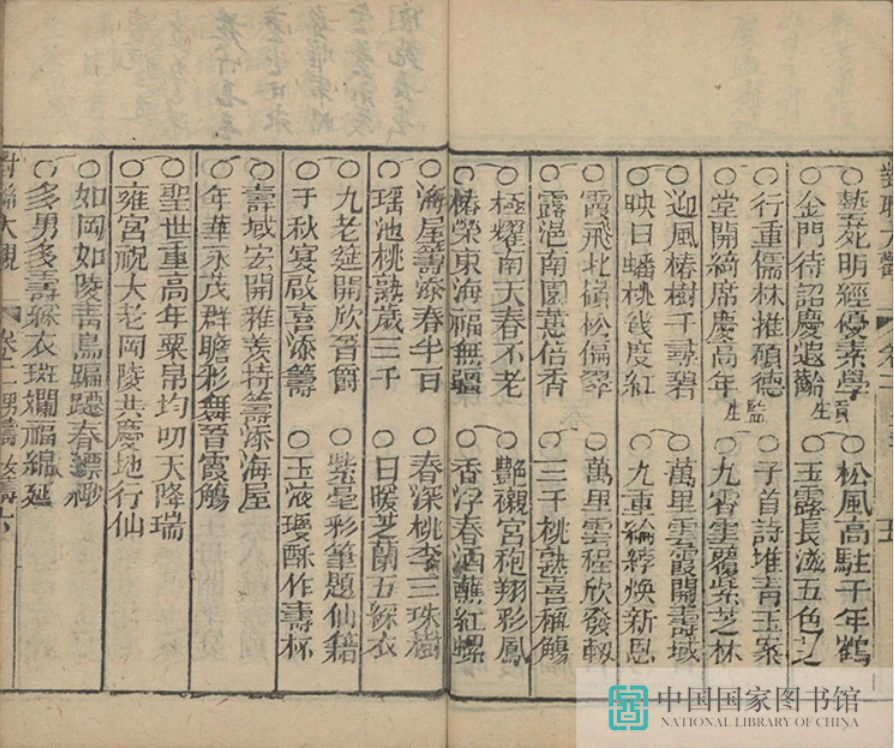 〇藝苑明經優素學　〇松風高駐千年鶴
〇金門待詔慶遐齡貢生　〇玉露長滋五色芝
〇行重儒林推碩德　〇子首詩堆靑玉案
〇堂開綺席慶高年監生　〇九霄雲覆紫芝林
〇迎風椿樹千尋碧　〇萬里雲霞開壽域
〇映日蟠桃幾度紅　〇九重綸綍煥新恩
〇霞飛北嶺松偏翠　〇萬里雲程欣發軔
〇露浥南園蕙倍香　〇三千桃熟喜稱觴
〇極耀南天春不老　〇艷襯宮袍翔彩鳳
〇椿榮東海福無疆　〇香浮春酒蘸紅螺
〇海屋籌添春半百　〇春深桃李三珠樹
〇瑶池桃熟歲三千　〇日暖芝蘭五綵衣
〇九老筵開欣晉爵　〇紫毫彩筆題仙籍
〇千秋宴啟喜添籌　〇玉液瓊酥作壽杯
〇壽域宏開雅羨持籌添海屋
〇年華永茂群瞻彩舞晉霞觴
〇聖世重高年粟帛均叨天降瑞
〇雍宮祝大老岡陵共慶地行仙
〇如岡如陵靑鳥蹁躚春縹緲
〇多男多壽綵衣斑斕福綿延
對聯大觀　卷二男壽　六
中国国家图书馆
NATIONAL LIBRARY OF CHINA